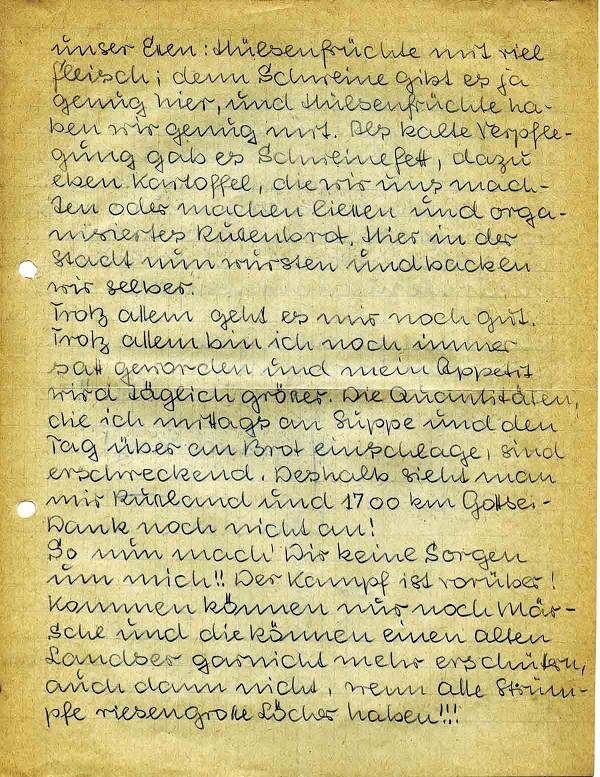 unser Essen: Hülsenfrüchte mit viel
Fleisch; denn Schweine gibt es ja
genug hier, und Hülsenfrüchte ha-
ben wir genug mit. Als kalte Verpfle-
gung gab es Schweinefett, dazu
eben Kartoffel, die wir uns mach-
ten oder machen ließen und orga-
nisiertes Russenbrot. Hier in der
Stadt nun wursten und backen
wir selber.
Trotz allem geht es mir noch gut.
Trotz allem bin ich noch immer
satt geworden und mein Appetit
wird täglich größer. Die Quantitäten,
die ich mittags an Suppe und den
Tag über an Brot einschlage, sind
erschreckend. Deshalb sieht man
mir Rußland und 1700 km Gottsei-
Dank noch nicht an!
So nun mach' Dir keine Sorgen
um mich!! Der Kampf ist vorüber!
Kommen können nur noch Mär-
sche und die können einen alten
Landser garnicht mehr erschüttern,
auch dann nicht, wenn alle Strüm-
pfe riesengroße Löcher haben!!!